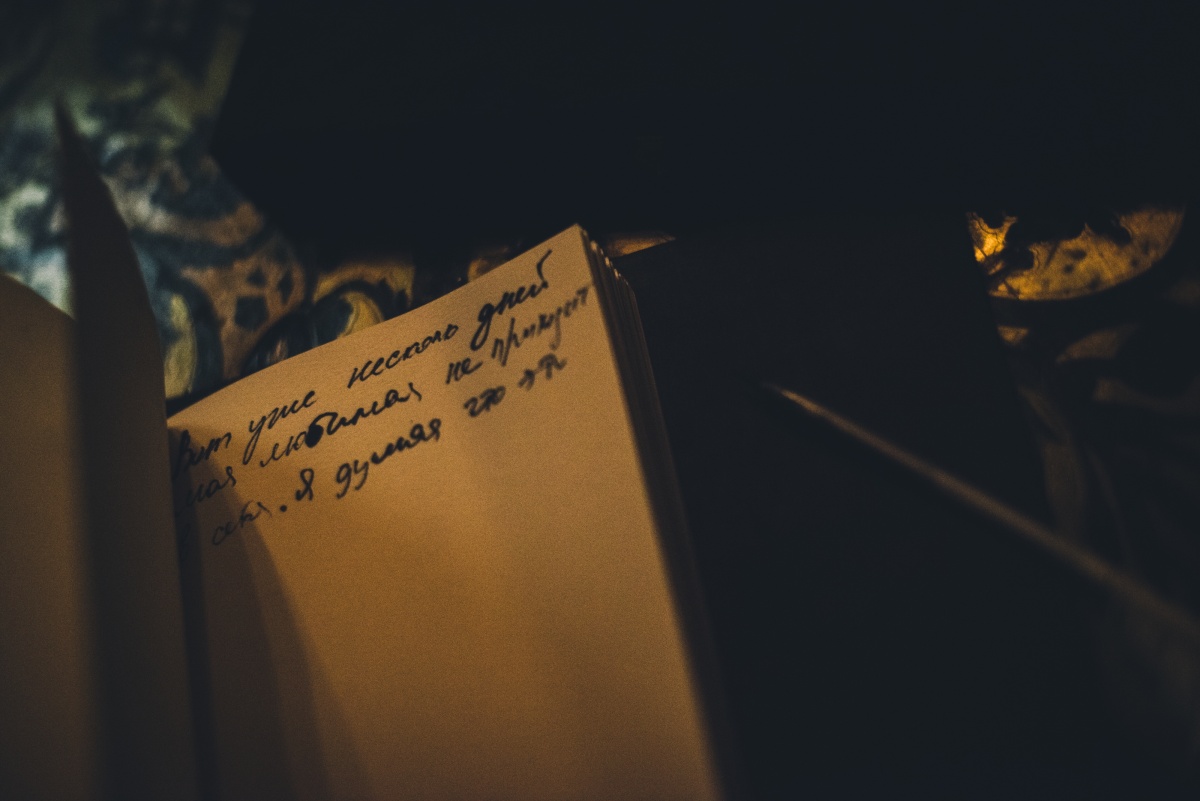 Вот уже несколо дней
моя любимая не приходит
в себя. Я думаю что это